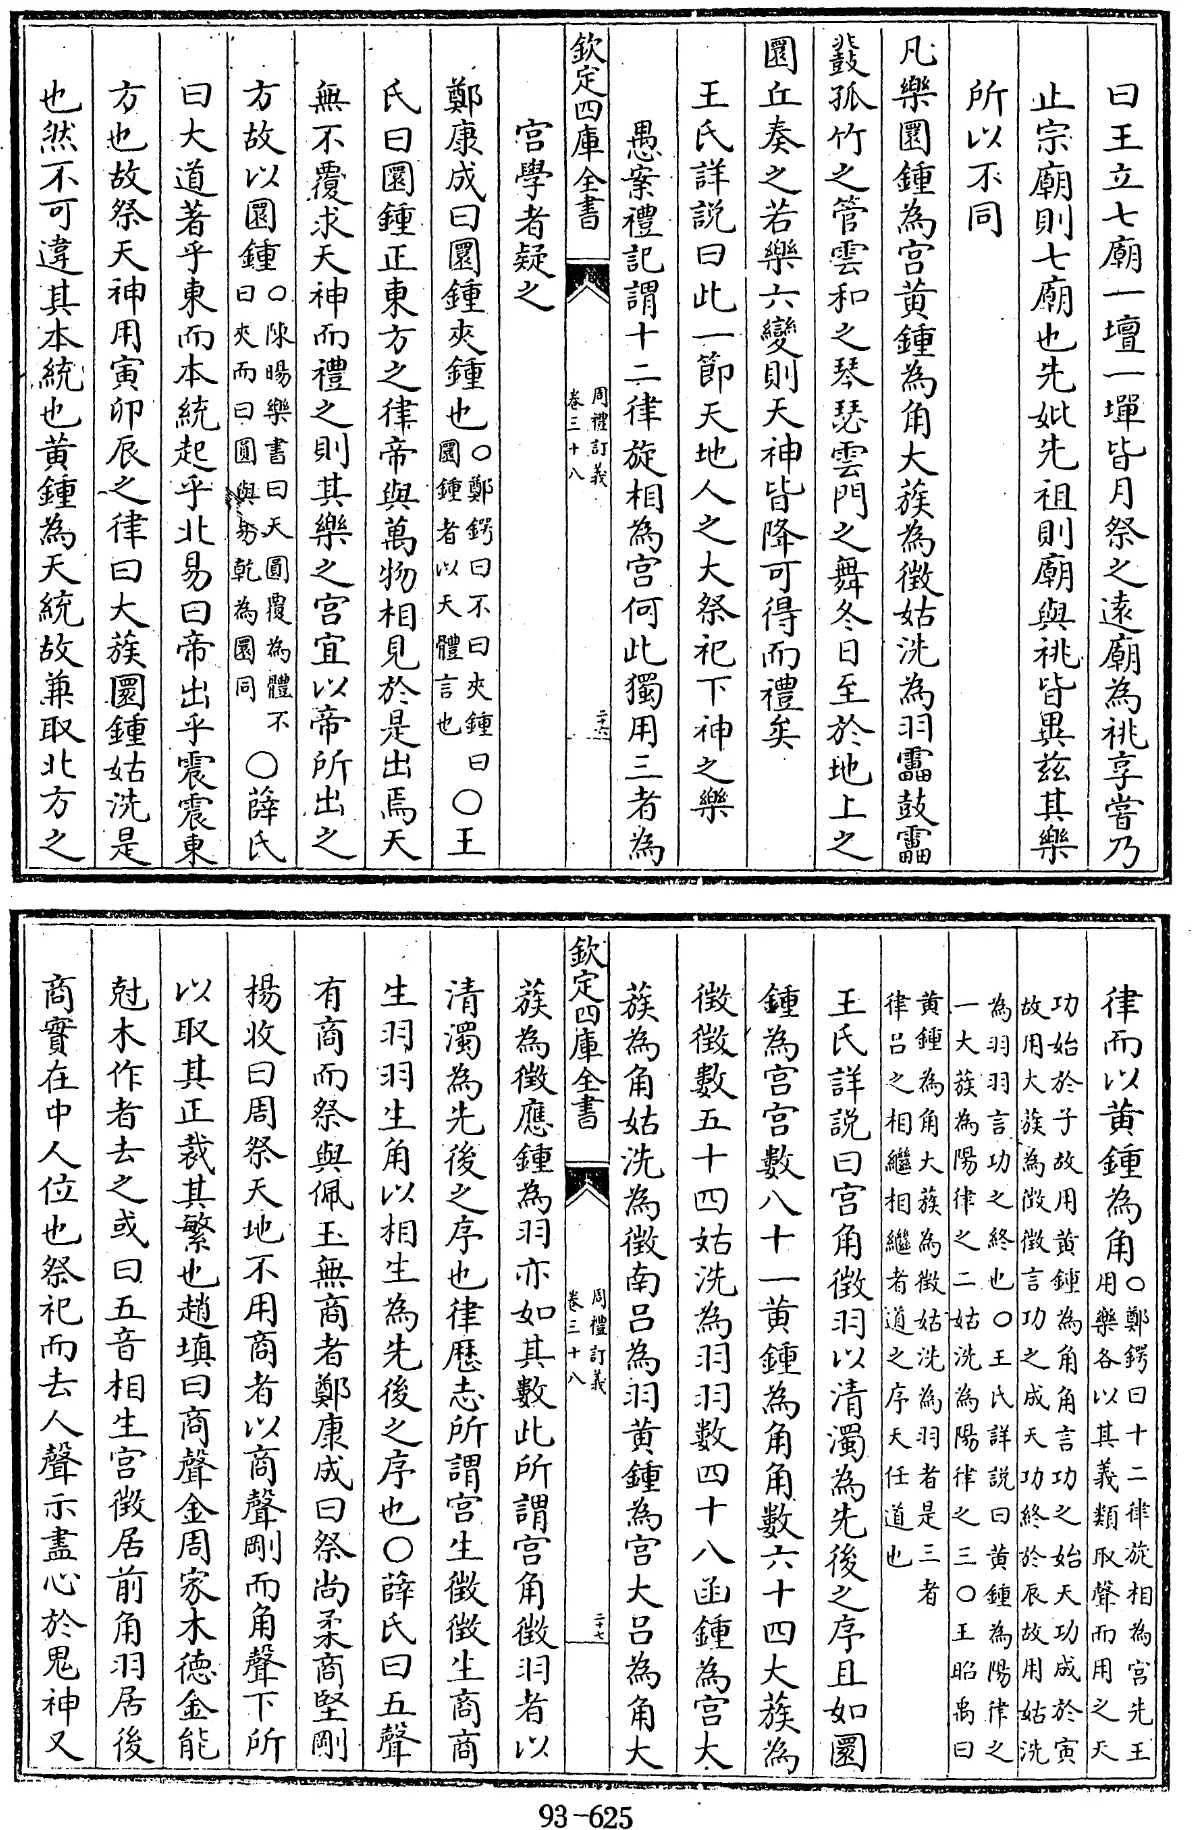 曰王立七廟一壇一墠皆月祭之遠廟為祧享嘗乃
止宗廟則七廟也先妣先祖則廟與祧皆異兹其樂
所以不同
凡樂圜鍾為宫黄鍾為角大蔟為徵姑洗為羽靁鼓靁
鼗孤竹之管雲和之琴瑟雲門之舞冬日至於地上之
圜丘奏之若樂六變則天神皆降可得而禮矣
王氏詳説曰此一節天地人之大祭祀下神之樂
愚案禮記謂十二律旋相為宫何此獨用三者為
欽定四庫全書
周禮訂義
卷三十八
二十六
宫學者疑之
鄭康成曰圜鍾夾鍾也○鄭鍔曰不曰夾鍾曰
圜鍾者以天體言也
○王
氏曰圜鍾正東方之律帝與萬物相見於是出焉天
無不覆求天神而禮之則其樂之宫宜以帝所出之
方故以圜鍾○陳暘樂書曰天圜覆為體不
曰夾而曰圓與易乾為圜同
○薛氏
曰大道著乎東而本統起乎北易曰帝出乎震震東
方也故祭天神用寅卯辰之律曰大蔟圜鍾姑洗是
也然不可違其本統也黄鍾為天統故兼取北方之
律而以黄鍾為角○鄭鍔曰十二律旋相為宫先王
用樂各以其義類取聲而用之天
功始於子故用黄鍾為角角言功之始天功成於寅
故用大蔟為徵徵言功之成天功終於辰故用姑洗
為羽羽言功之終也○王氏詳説曰黄鍾為陽律之
一大蔟為陽律之二姑洗為陽律之三○王昭禹曰
黄鍾為角大蔟為徵姑洗為羽者是三者
律吕之相繼相繼者道之序天任道也
王氏詳説曰宫角徵羽以清濁為先後之序且如圜
鍾為宫宫數八十一黄鍾為角角數六十四大蔟為
徵徵數五十四姑洗為羽羽數四十八函鍾為宫太
蔟為角姑洗為徵南吕為羽黄鍾為宫大吕為角大
欽定四庫全書
周禮訂義
卷三十八
二十七
蔟為徵應鍾為羽亦如其數此所謂宫角徵羽者以
清濁為先後之序也律歴志所謂宫生徵徵生商商
生羽羽生角以相生為先後之序也○薛氏曰五聲
有商而祭與佩玉無商者鄭康成曰祭尚柔商堅剛
揚收曰周祭天地不用商者以商聲剛而角聲下所
以取其正裁其繁也趙填曰商聲金周家木德金能
尅木作者去之或曰五音相生宫徵居前角羽居後
商實在中人位也祭祀而去人聲示盡心於鬼神又
93-625